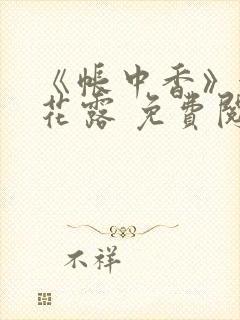 《帐中香》
花露 免費閱
不祥